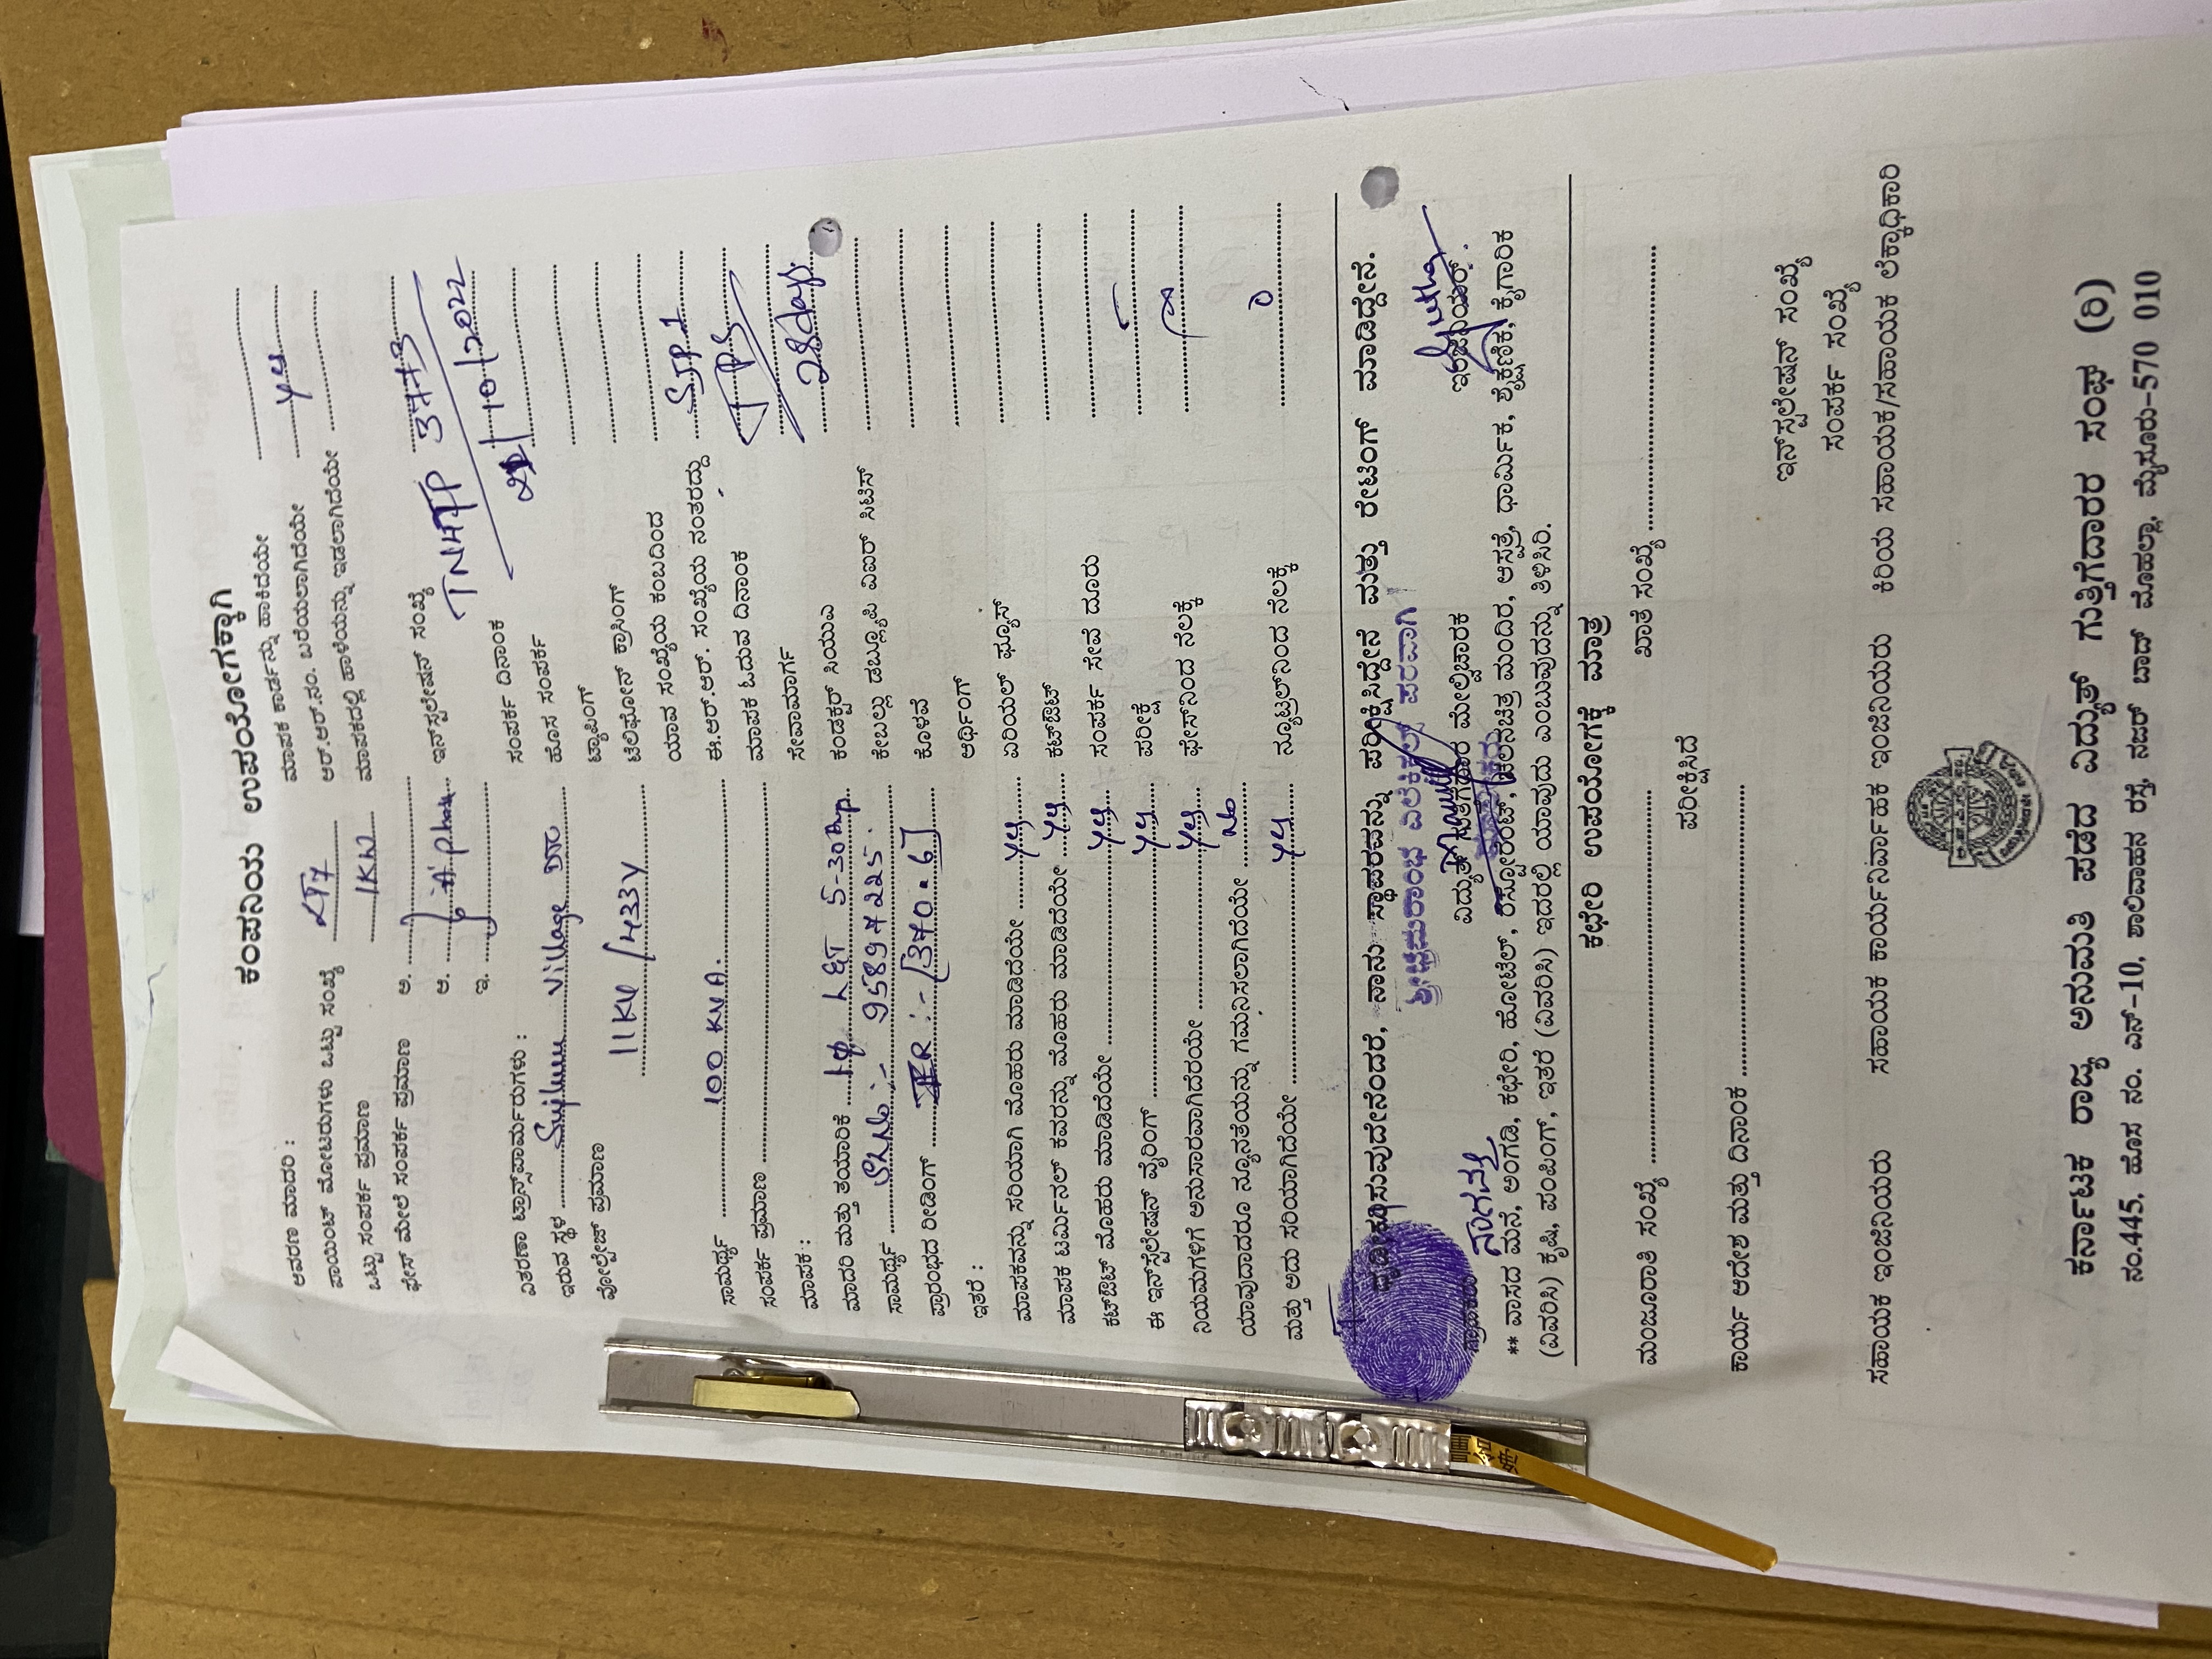 ಕಂಪನಿಯ ಉಪಯೋಗಕ್ಕಾಗಿ
ಆವರಣ ಮಾದರಿ :
ಮಾಪಕ ಕಾರ್ಡನ್ನು ಹಾಕಿದೆಯೇ
ಪಾಯಿಂಟ್ ಮೋಟರುಗಳು ಒಟ್ಟು ಸಂಖ್ಯೆ LT7
ಆರ್.ಆರ್.ನಂ. ಬರೆಯಲಾಗಿದೆಯೇ Yes
ಒಟ್ಟು ಸಂಪರ್ಕ ಪ್ರಮಾಣ 1KW
ಮಾಪಕದಲ್ಲಿ ಹಾಳೆಯನ್ನು ಇಡಲಾಗಿದೆಯೇ
ಫೇಸ್ ಮೇಲೆ ಸಂಪರ್ಕ ಪ್ರಮಾಣ ಅ.
ಆ. ಇನ್‌ಸ್ಟಲೇಷನ್ ಸಂಖ್ಯೆ TNHTP 37773
ಇ.
ಸಂಪರ್ಕ ದಿನಾಂಕ /10/2022
ವಿತರಣಾ ಟ್ರಾನ್ಸ್‌ಫಾರ್ಮರುಗಳು :
ಹೊಸ ಸಂಪರ್ಕ
ಇರುವ ಸ್ಥಳ Village
ಟ್ಯಾಪಿಂಗ್
ವೋಲ್ಟೇಜ್ ಪ್ರಮಾಣ 11KV /433V
ಟೆಲಿಫೋನ್ ಕ್ರಾಸಿಂಗ್
ಯಾವ ಸಂಖ್ಯೆಯ ಕಂಬದಿಂದ
ಸಾಮರ್ಥ್ಯ 100 KVA.
ಈ.ಆರ್.ಆರ್. ಸಂಖ್ಯೆಯ ನಂತರದ್ದು SJP1
ಸಂಪರ್ಕ ಪ್ರಮಾಣ
ಮಾಪಕ ಓದುವ ದಿನಾಂಕ
ಮಾಪಕ :
ಸೇವಾಮಾರ್ಗ 28days.
ಮಾದರಿ ಮತ್ತು ತಯಾರಿಕೆ 1φ L&T 5-30Amp
ಕಂಡಕ್ಟರ್ ಸಿಯುಎ
ಸಾಮರ್ಥ್ಯ SLNo :- 95897225.
ಕೇಬಲ್ಲು ಡಬ್ಲ್ಯೂಪಿ ವಿಐಆರ್ ಸಿಟಿಸ್
ಪ್ರಾರಂಭದ ರೀಡಿಂಗ್ IR :- [370.6]
ಕೊಳವೆ
ಇತರೆ :
ಅರ್ಥಿಂಗ್
ಮಾಪಕವನ್ನು ಸರಿಯಾಗಿ ಮೊಹರು ಮಾಡಿದೆಯೇ Yes
ಏರಿಯಲ್ ಫ್ಯೂಸ್
ಮಾಪಕ ಟರ್ಮಿನಲ್ ಕವರನ್ನು ಮೊಹರು ಮಾಡಿದೆಯೇ Yes
ಕಟ್‌ಔಟ್
ಕಟ್‌ಔಟ್ ಮೊಹರು ಮಾಡಿದೆಯೇ Yes
ಸಂಪರ್ಕ ಸೇವೆ ದೂರು
ಈ ಇನ್‌ಸ್ಟಲೇಷನ್ ವೈರಿಂಗ್ Yes
ಪರೀಕ್ಷೆ
ನಿಯಮಗಳಿಗೆ ಅನುಸಾರವಾಗಿದೆಯೇ Yes
ಫೇಸ್‌ನಿಂದ ನೆಲಕ್ಕೆ
ಯಾವುದಾದರೂ ನ್ಯೂನತೆಯನ್ನು ಗಮನಿಸಲಾಗಿದೆಯೇ No
ಮತ್ತು ಅದು ಸರಿಯಾಗಿದೆಯೇ Yes
ನ್ಯೂಟ್ರಲ್‌ನಿಂದ ನೆಲಕ್ಕೆ 0
ದೃಢೀಕರಿಸುವುದೇನೆಂದರೆ, ನಾನು ಸ್ಥಾವರವನ್ನು ಪರೀಕ್ಷಿಸಿದ್ದೇನೆ ಮತ್ತು ರೇಟಿಂಗ್ ಮಾಡಿದ್ದೇನೆ.
ಎಲೆಕ್ಟ್ರಿಕಲ್ಸ್ ಪರವಾಗಿ
ಗ್ರಾಹಕರು
ವಿದ್ಯುತ್ ಗುತ್ತಿಗೆದಾರ ಮೇಲ್ವಿಚಾರಕ
ಇಂಜಿನಿಯರ್.
** ವಾಸದ ಮನೆ, ಅಂಗಡಿ, ಕಛೇರಿ, ಹೋಟೆಲ್, ರೆಸ್ಟೋರೆಂಟ್, ಚಲನಚಿತ್ರ ಮಂದಿರ, ಆಸ್ಪತ್ರೆ, ಧಾರ್ಮಿಕ, ಶೈಕ್ಷಣಿಕ, ಕೈಗಾರಿಕ
(ವಿವರಿಸಿ) ಕೃಷಿ, ಪಂಪಿಂಗ್, ಇತರೆ (ವಿವರಿಸಿ) ಇದರಲ್ಲಿ ಯಾವುದು ಎಂಬುವುದನ್ನು ತಿಳಿಸಿರಿ.
ಕಛೇರಿ ಉಪಯೋಗಕ್ಕೆ ಮಾತ್ರ
ಮಂಜೂರಾತಿ ಸಂಖ್ಯೆ
ಖಾತೆ ಸಂಖ್ಯೆ
ಪರೀಕ್ಷಿಸಿದೆ
ಕಾರ್ಯ ಆದೇಶ ಮತ್ತು ದಿನಾಂಕ
ಇನ್‌ಸ್ಟಲೇಷನ್ ಸಂಖ್ಯೆ
ಸಂಪರ್ಕ ಸಂಖ್ಯೆ
ಸಹಾಯಕ ಇಂಜಿನಿಯರು ಸಹಾಯಕ ಕಾರ್ಯನಿರ್ವಾಹಕ ಇಂಜಿನಿಯರು ಕಿರಿಯ ಸಹಾಯಕ/ಸಹಾಯಕ ಲೆಕ್ಕಾಧಿಕಾರಿ
ಕರ್ನಾಟಕ ರಾಜ್ಯ ಅನುಮತಿ ಪಡೆದ ವಿದ್ಯುತ್ ಗುತ್ತಿಗೆದಾರರ ಸಂಘ (ರಿ)
ನಂ.445, ಹೊಸ ನಂ. ಎನ್-10, ಶಾಲಿವಾಹನ ರಸ್ತೆ, ನಜರ್ ಬಾದ್ ಮೊಹಲ್ಲಾ, ಮೈಸೂರು-570 010